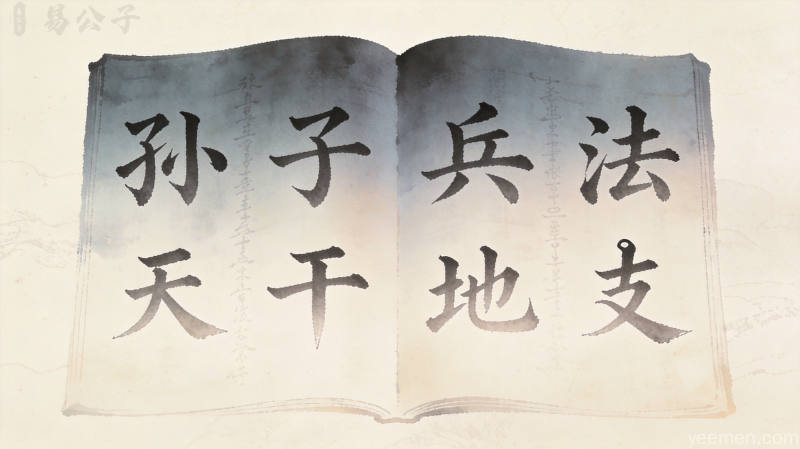 易公子
孙子兵法
天干地支
yeemen.com